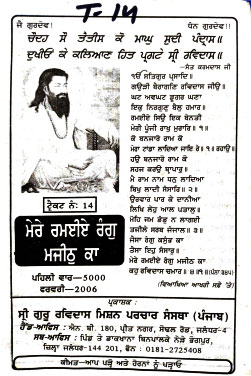 T-14
ਜੈ ਗੁਰਦੇਵ! ਧੰਨ ਗੁਰਦੇਵ!!
ਚੌਦਾਂ ਸੌ ਤੇਤੀਸ ਕੋ ਮਾਘੁ ਸੁਦੀ ਪੰਦ੍ਰਾਸ॥
ਦੁਖੀਓਂ ਕੇ ਕਲਿਆਣ ਹਿਤ ਪ੍ਰਗਟੇ ਸ੍ਰੀ ਰਵਿਦਾਸ॥
-ਸੰਤ ਕਰਮਦਾਸ ਜੀ
ੴ ਸਤਿਗੁਰ ਪ੍ਰਸਾਦਿ॥
ਗਉੜੀ ਬੈਰਾਗਣਿ ਰਵਿਦਾਸ ਜੀਉ॥
ਘਟ ਅਵਘਟ ਡੂਗਰ ਘਣਾ
ਇਕੁ ਨਿਰਗੁਣੁ ਬੈਲੁ ਹਮਾਰ॥
ਰਮਈਏ ਸਿਉ ਇਕ ਬੇਨਤੀ
ਮੇਰੀ ਪੂੰਜੀ ਰਾਖੁ ਮੁਰਾਰਿ॥੧॥
ਕੋ ਬਨਜਾਰੋ ਰਾਮ ਕੋ
ਮੇਰਾ ਟਾਂਡਾ ਲਾਦਿਆ ਜਾਇ ਰੇ॥੧॥ਰਹਾਉ॥
ਹਉ ਬਨਜਾਰੋ ਰਾਮ ਕੋ
ਸਹਜ ਕਰਉ ਬ੍ਯਾਪਾਰੁ॥
ਮੈ ਰਾਮ ਨਾਮ ਧਨੁ ਲਾਦਿਆ
ਬਿਖੁ ਲਾਦੀ ਸੰਸਾਰਿ॥੨॥
ਉਰਵਾਰ ਪਾਰ ਕੇ ਦਾਨੀਆ
ਲਿਖਿ ਲੇਹੁ ਆਲ ਪਤਾਲੁ॥
ਮੋਹਿ ਜਮ ਡੰਡੁ ਨ ਲਾਗਈ
ਤਜੀਲੇ ਸਰਬ ਜੰਜਾਲ॥੩॥
ਜੈਸਾ ਰੰਗੁ ਕਸੁੰਭ ਕਾ
ਤੈਸਾ ਇਹੁ ਸੰਸਾਰੁ॥
ਮੇਰੇ ਰਮਈਏ ਰੰਗੁ ਮਜੀਠ ਕਾ
ਕਹੁ ਰਵਿਦਾਸ ਚਮਾਰ॥੪॥੧॥
ਟ੍ਰੈਕਟ ਨੰ: 14
ਮੇਰੇ ਰਮਈਏ ਰੰਗੁ
ਮਜੀਠੁ ਕਾ
ਪਹਿਲੀ ਵਾਰ—5000
ਫਰਵਰੀ—2006
ਪ੍ਰਕਾਸ਼ਕ:
ਸ੍ਰੀ ਗੁਰੂ ਰਵਿਦਾਸ ਮਿਸ਼ਨ ਪਰਚਾਰ ਸੰਸਥਾ (ਪੰਜਾਬ)
ਹੈਡ-ਆਫਿਸ: ਐਨ. ਬੀ. 180, ਪ੍ਰੀਤ ਨਗਰ, ਸੋਢਲ ਰੋਡ, ਜਲੰਧਰ-4
ਸਬ-ਆਫਿਸ: ਪਿੰਡ ਤੇ ਡਾਕਖਾਨਾ ਬਿਨਪਾਲਕੇ ਨੇੜੇ ਭੋਗਪੁਰ,
ਜ਼ਿਲ੍ਹਾ ਜਲੰਧਰ-144 201, ਫੋਨ: 0181-2725408
ਕੀਮਤ—ਆਪ ਪੜ੍ਹੋ ਅਤੇ ਹੋਰਨਾਂ ਨੂੰ ਪੜ੍ਹਾਓ